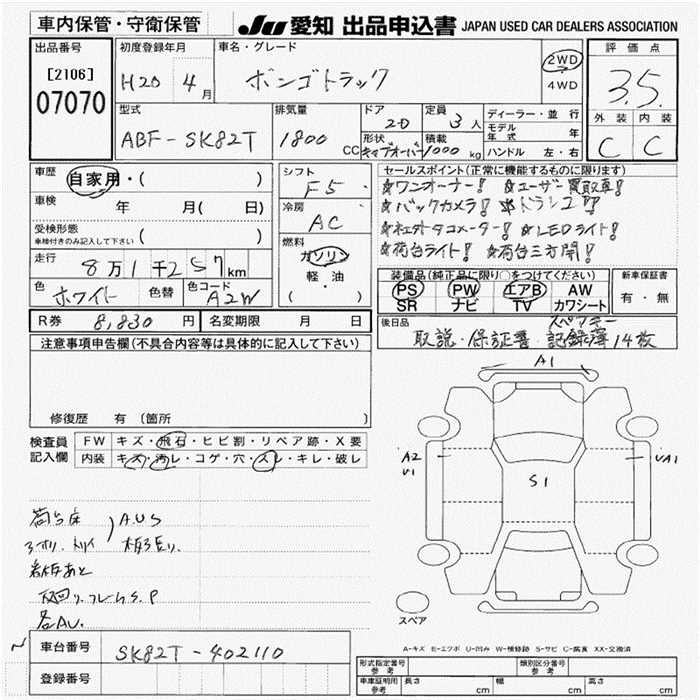 車内保管・守衛保管
JU 愛知 出品申込書 JAPAN USED CAR DEALERS ASSOCIATION
出品番号
[2106]
07070
初度登録年月
H20 年 4月
車名・グレード
ボンゴトラック
2WD
4WD
評価点
3.5
外装 内装
C C
型式
ABF-SK82T
排気量
1800 CC
ドア
2D
定員
3人
形状
キャブオーバー
積載
1000 kg
ディーラー・並行
モデル年式 年
ハンドル 左・右
車歴
自家用・( )
車検 年 月( 日)
受検形態
車検付きのみ記入して下さい ( )
走行
8万1千257km
色
ホワイト
色替
色コード
A2W
シフト
F5
冷房
AC
燃料
ガソリン
軽・油
( )
セールスポイント(正常に機能するものに限ります)
☆ワンオーナー! ☆ユーザー買取車!
☆バックカメラ! ☆ドラレコ!!
☆社外タコメーター! ☆LEDライト!
☆荷台ライト! ☆荷台三方開!
装備品(純正品に限り○をつけてください)
PS PW エアB AW
SR ナビ TV カワシート
新車保証書
有・無
R券 8,830円
名変期限 月 日
後日品
スペアキー
取説・保証書・記録簿 14枚
注意事項申告欄(不具合内容等は具体的に記入して下さい)
修復歴 有(箇所
検査員記入欄
FW キズ・飛石・ヒビ割・リペア跡・X要
内装 キズ・汚レ・コゲ・穴・スレ・キレ・破レ
荷台床 A.U.S
看板あと
下回り.フレームS.P
各AU.
A1
A2
U1
S1
UA1
スペア
A-キズ E-エクボ U-凹み W-補修跡 S-サビ C-腐食 XX-交換済
車台番号 SK82T-402110
登録番号
形式指定番号 参考
類別区分番号 参考
車庫証明用 参考
長さ cm
幅 cm
高さ cm